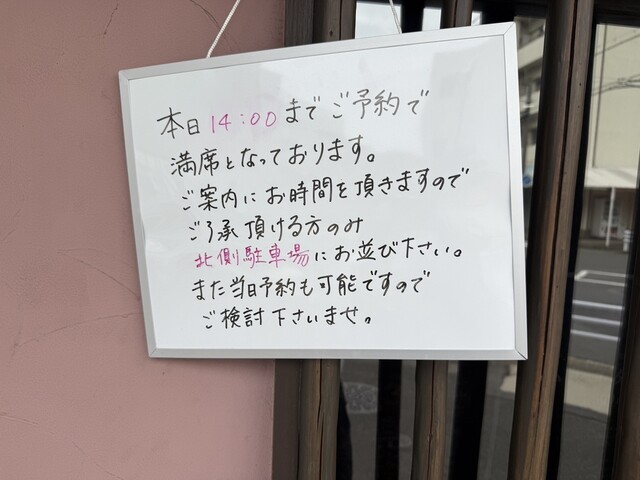 本日14:00までご予約で
満席となっております。
ご案内にお時間を頂きますので
ご了承頂ける方のみ
北側駐車場にお並び下さい。
また当日予約も可能ですので
ご検討下さいませ。